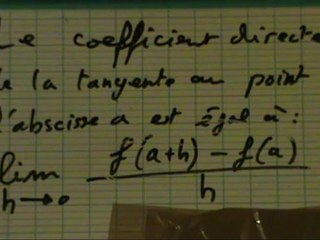 Le coefficient directe
de la tangente au point
d'abscisse a est égal à:
lim f(a+h) - f(a)
h→0 h